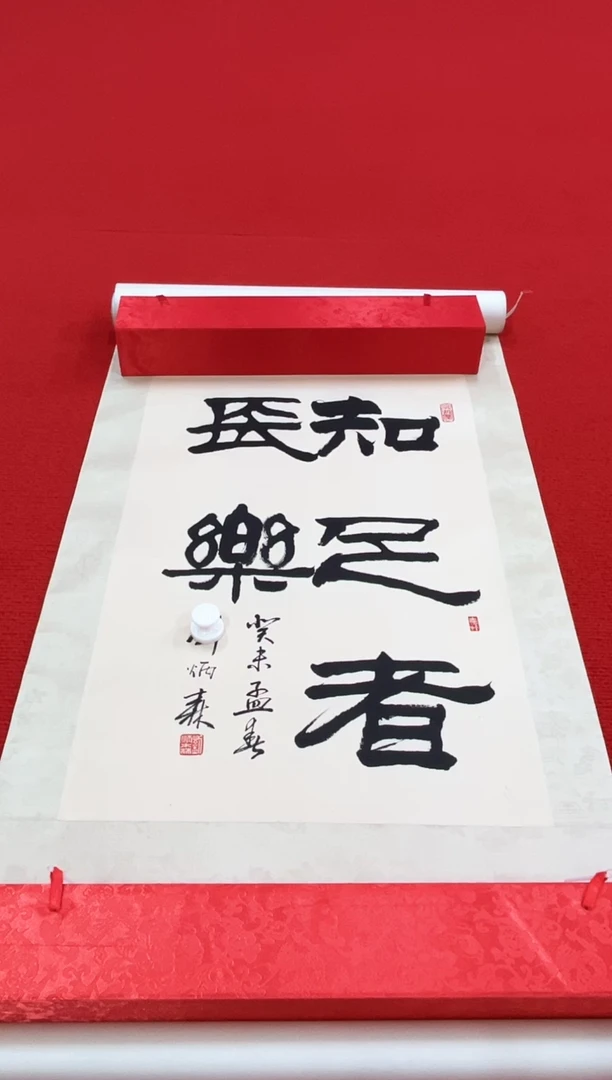 知足者
長樂
癸未孟春
炳森